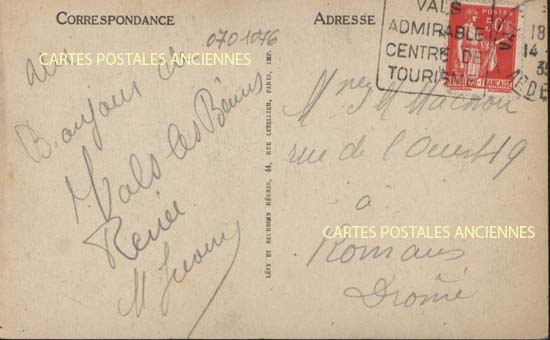 CORRESPONDANCE
ADRESSE
0701076
CARTES POSTALES ANCIENNES
Bonjour de
Vals les Bains
Renée
LÉVY ET NEURDEIN RÉUNIS, 44, RUE LETELLIER, PARIS, IMP.
VALS
ADMIRABLE
CENTRE DE
TOURISME
ARDÈ
18
14
35
POSTES
50c
RÉPUBLIQUE FRANÇAISE
M
rue de l'Ouest 49
à
CARTES POSTALES ANCIENNES
Romans
Drôme